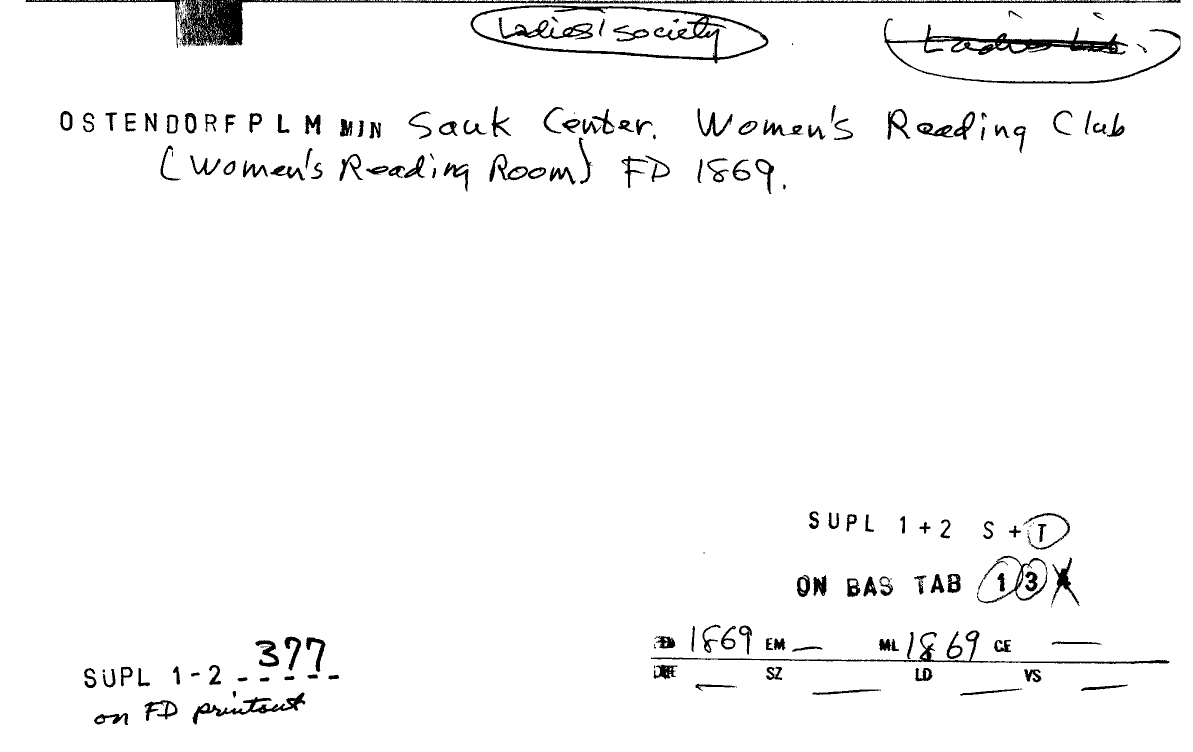 Ladies' society
Ladies
OSTENDORF P L M MIN Sauk Center. Women's Reading Club
(Women's Reading Room) FD 1869.
SUPL 1+2 S+T
ON BAS TAB 1 3
1869 EM — ML 1869 CE —
SZ — LD — VS —
SUPL 1-2 377
on FD printout